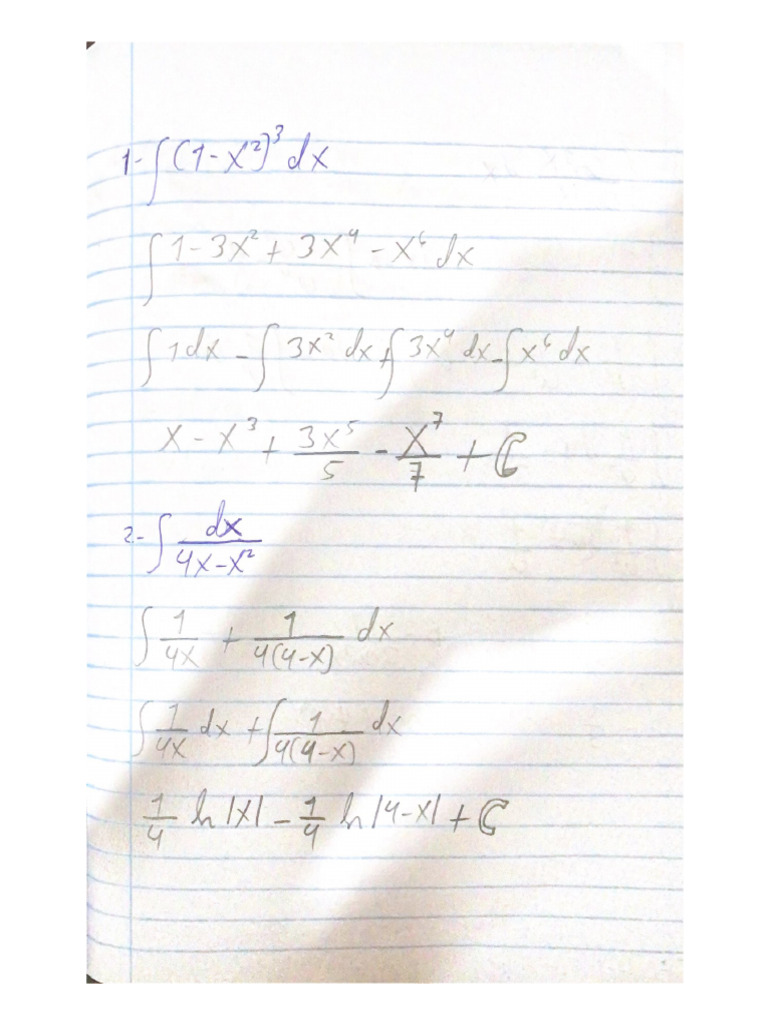 1- ∫(1-x²)³ dx
∫ 1-3x²+3x⁴-x⁶ dx
∫ 1dx - ∫ 3x² dx + ∫ 3x⁴ dx - ∫ x⁶ dx
x - x³ + 3x⁵/5 - x⁷/7 + C
2- ∫ dx/(4x-x²)
∫ 1/4x + 1/4(4-x) dx
∫ 1/4x dx + ∫ 1/4(4-x) dx
1/4 ln|x| - 1/4 ln|4-x| + C